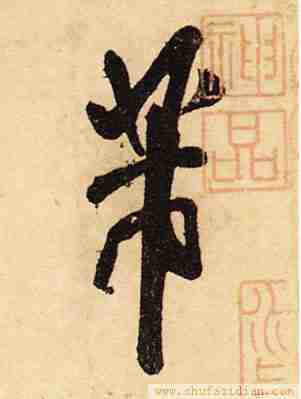 帶
神
品
www.shufazidian.com